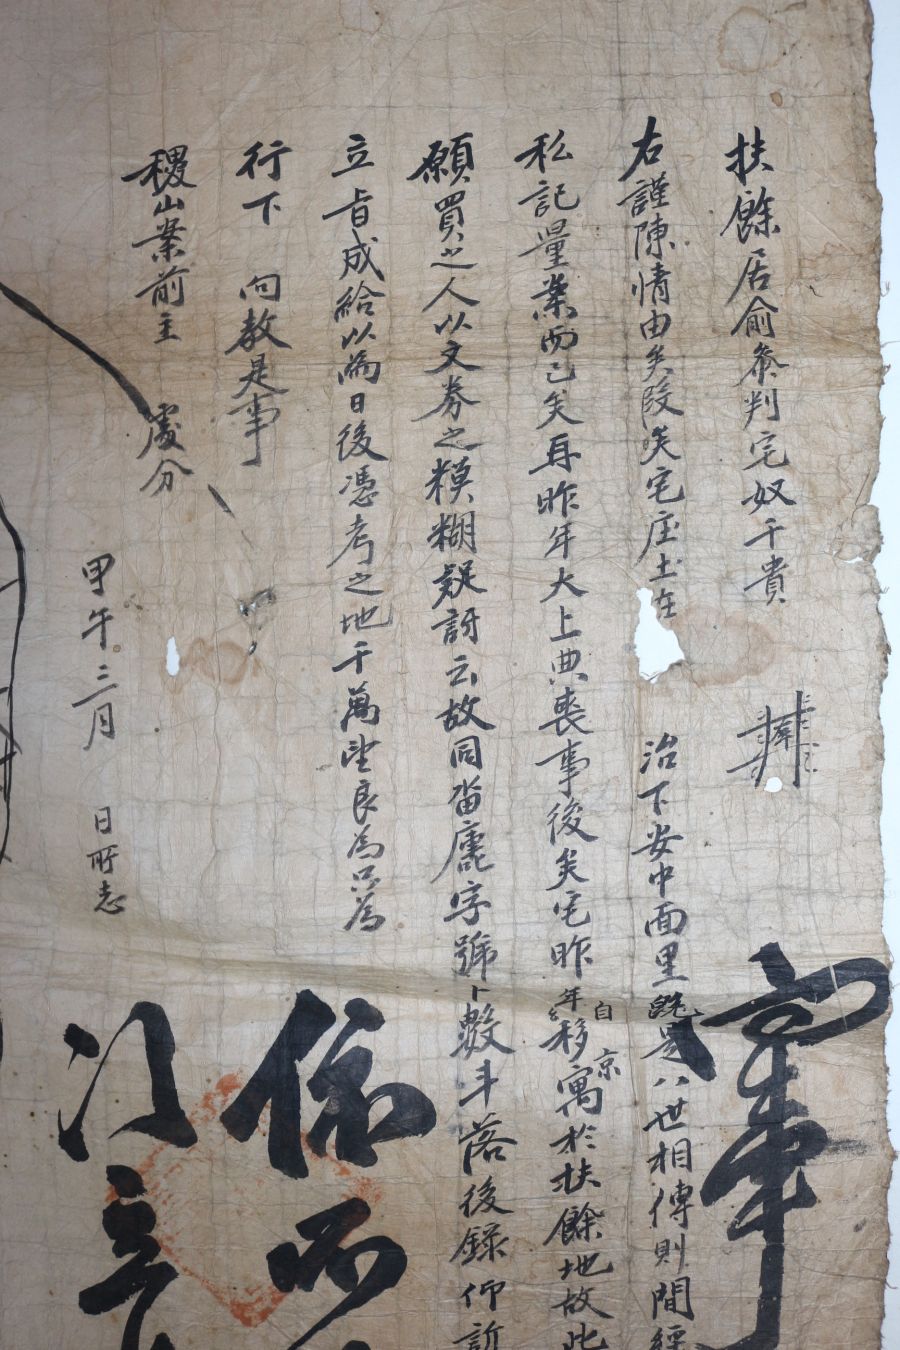 扶餘居俞參判宅奴千貴
右謹陳情由矣段矣宅庄土在 治下安中面里 是八世相傳則間經
私記量案而已矣再昨年大上典喪事後矣宅昨年自京移寓於扶餘地故此
願買之人以文券之模糊疑訝云故同畓 字號卜數斗落後錄仰訴
立旨成給以爲日後憑考之地千萬望良爲只爲
行下 向敎是事
稷山案前主 處分
甲午三月 日所志
依
立